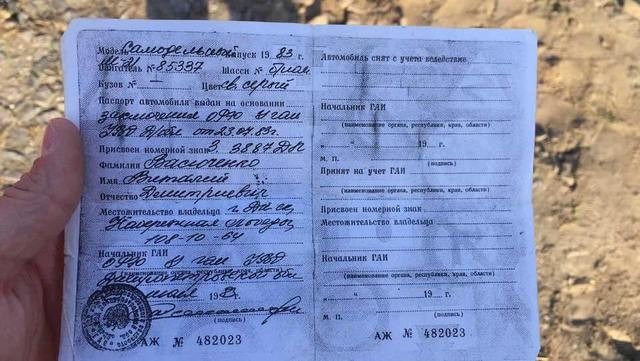 Модель Самодельный Выпуск 1983 г.
Двигатель № 85337 Шасси №
Кузов № — Цвет св. серый
Паспорт автомобиля выдан на основании
заключения ОФО УГАИ
УВД Д/обл от 23.07.83г.
Присвоен номерной знак З 3887 ДН
Фамилия Васюченко
Имя Виталий
Отчество Дмитриевич
Местожительство владельца г.
Набережная Победы
108-10-64
Начальник ГАИ
ОФО УГАИ УВД
(наименование органа, республики, края, области)
Днепропетровской обл
198 г.
(подпись)
АЖ № 482023
Автомобиль снят с учета вследствие
Начальник ГАИ
(наименование органа, республики, края, области)
" " 19 г.
М. П. (подпись)
Принят на учет ГАИ
(наименование органа, республики, края, области)
Присвоен номерной знак
Местожительство владельца
Начальник ГАИ
(наименование органа, республики, края, области)
" " 19 г.
М. П. (подпись)
АЖ № 482023